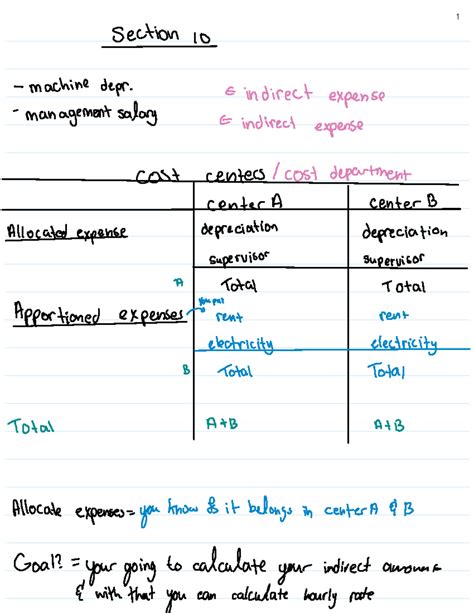 1
Section 10
- machine depr. ∈ indirect expense
- management salary ∈ indirect expense
cost centers / cost department
center A center B
Allocated expense depreciation depreciation
supervisor supervisor
A Total Total
Apportioned expenses rent rent
electricity electricity
B Total Total
Total A+B A+B
Allocate expenses = you know & it belongs in center A & B
Goal? = your going to calculate your indirect amounts
& with that you can calculate hourly rate